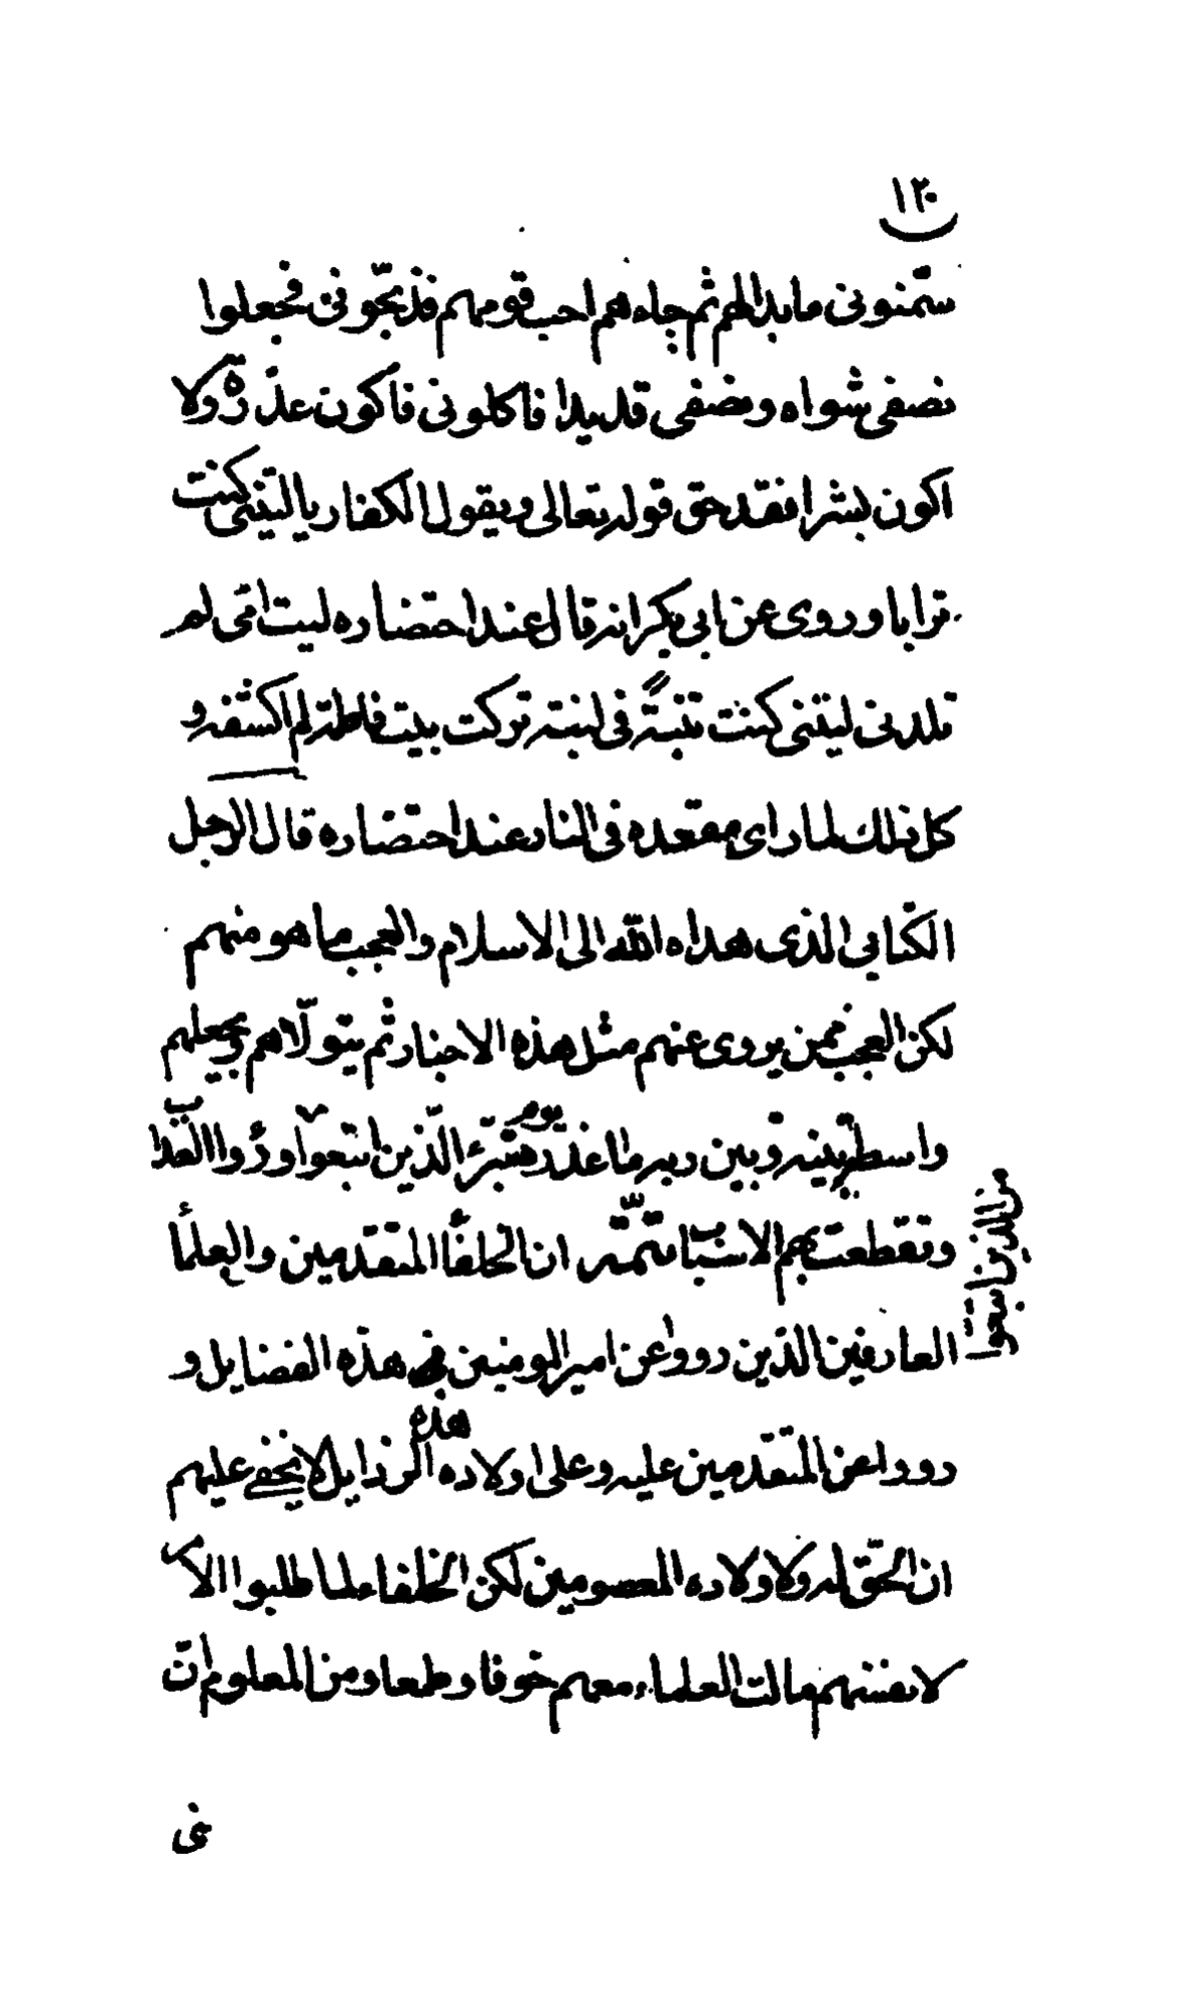 ١٢٠
سمّنوني ما بدا لهم ثم جاءهم احب قومهم فذبحّوني فجعلوا
نصفي شواه ونصفي قديدا فاكلوني فاكون عذرة ولا
اكون بشرا فقد حق قوله تعالى ويقول الكفار يا ليتني كنت
ترابا وروى عن ابي بكر انه قال عند احتضاره ليت امّي لم
تلدني ليتني كنت تبنة في لبنة تركت بيت فاطمة لم اكشفه و
كل ذلك لما راى مقعده في النار عند احتضاره قال الرجل
الكتابي الذي هداه الله الى الاسلام والعجب ما هو منهم
لكن العجب فمن يروى عنهم مثل هذه الاخبار ثم يتولّاهم ويجعلهم
واسطة بينه وبين ربه ما عذره يوم تبرّء الّذين اتبعوا وراوا العذاب
من الذين اتبعوا
وتقطعت بهم الاسباب تتمّة ان الخلفاء المتقدمين والعلماء
العارفين الذين رووا عن امير المومنين هذه الفضايل و
رووا عن المتقدمين عليه وعلى اولاده هذه الرذايل لا يخفى عليهم
ان الحقّ له ولاولاده المعصومين لكن الخلفاء لما طلبوا الامر
لانفسهم مالت العلماء معهم خوفا وطمعا ومن المعلوم ان